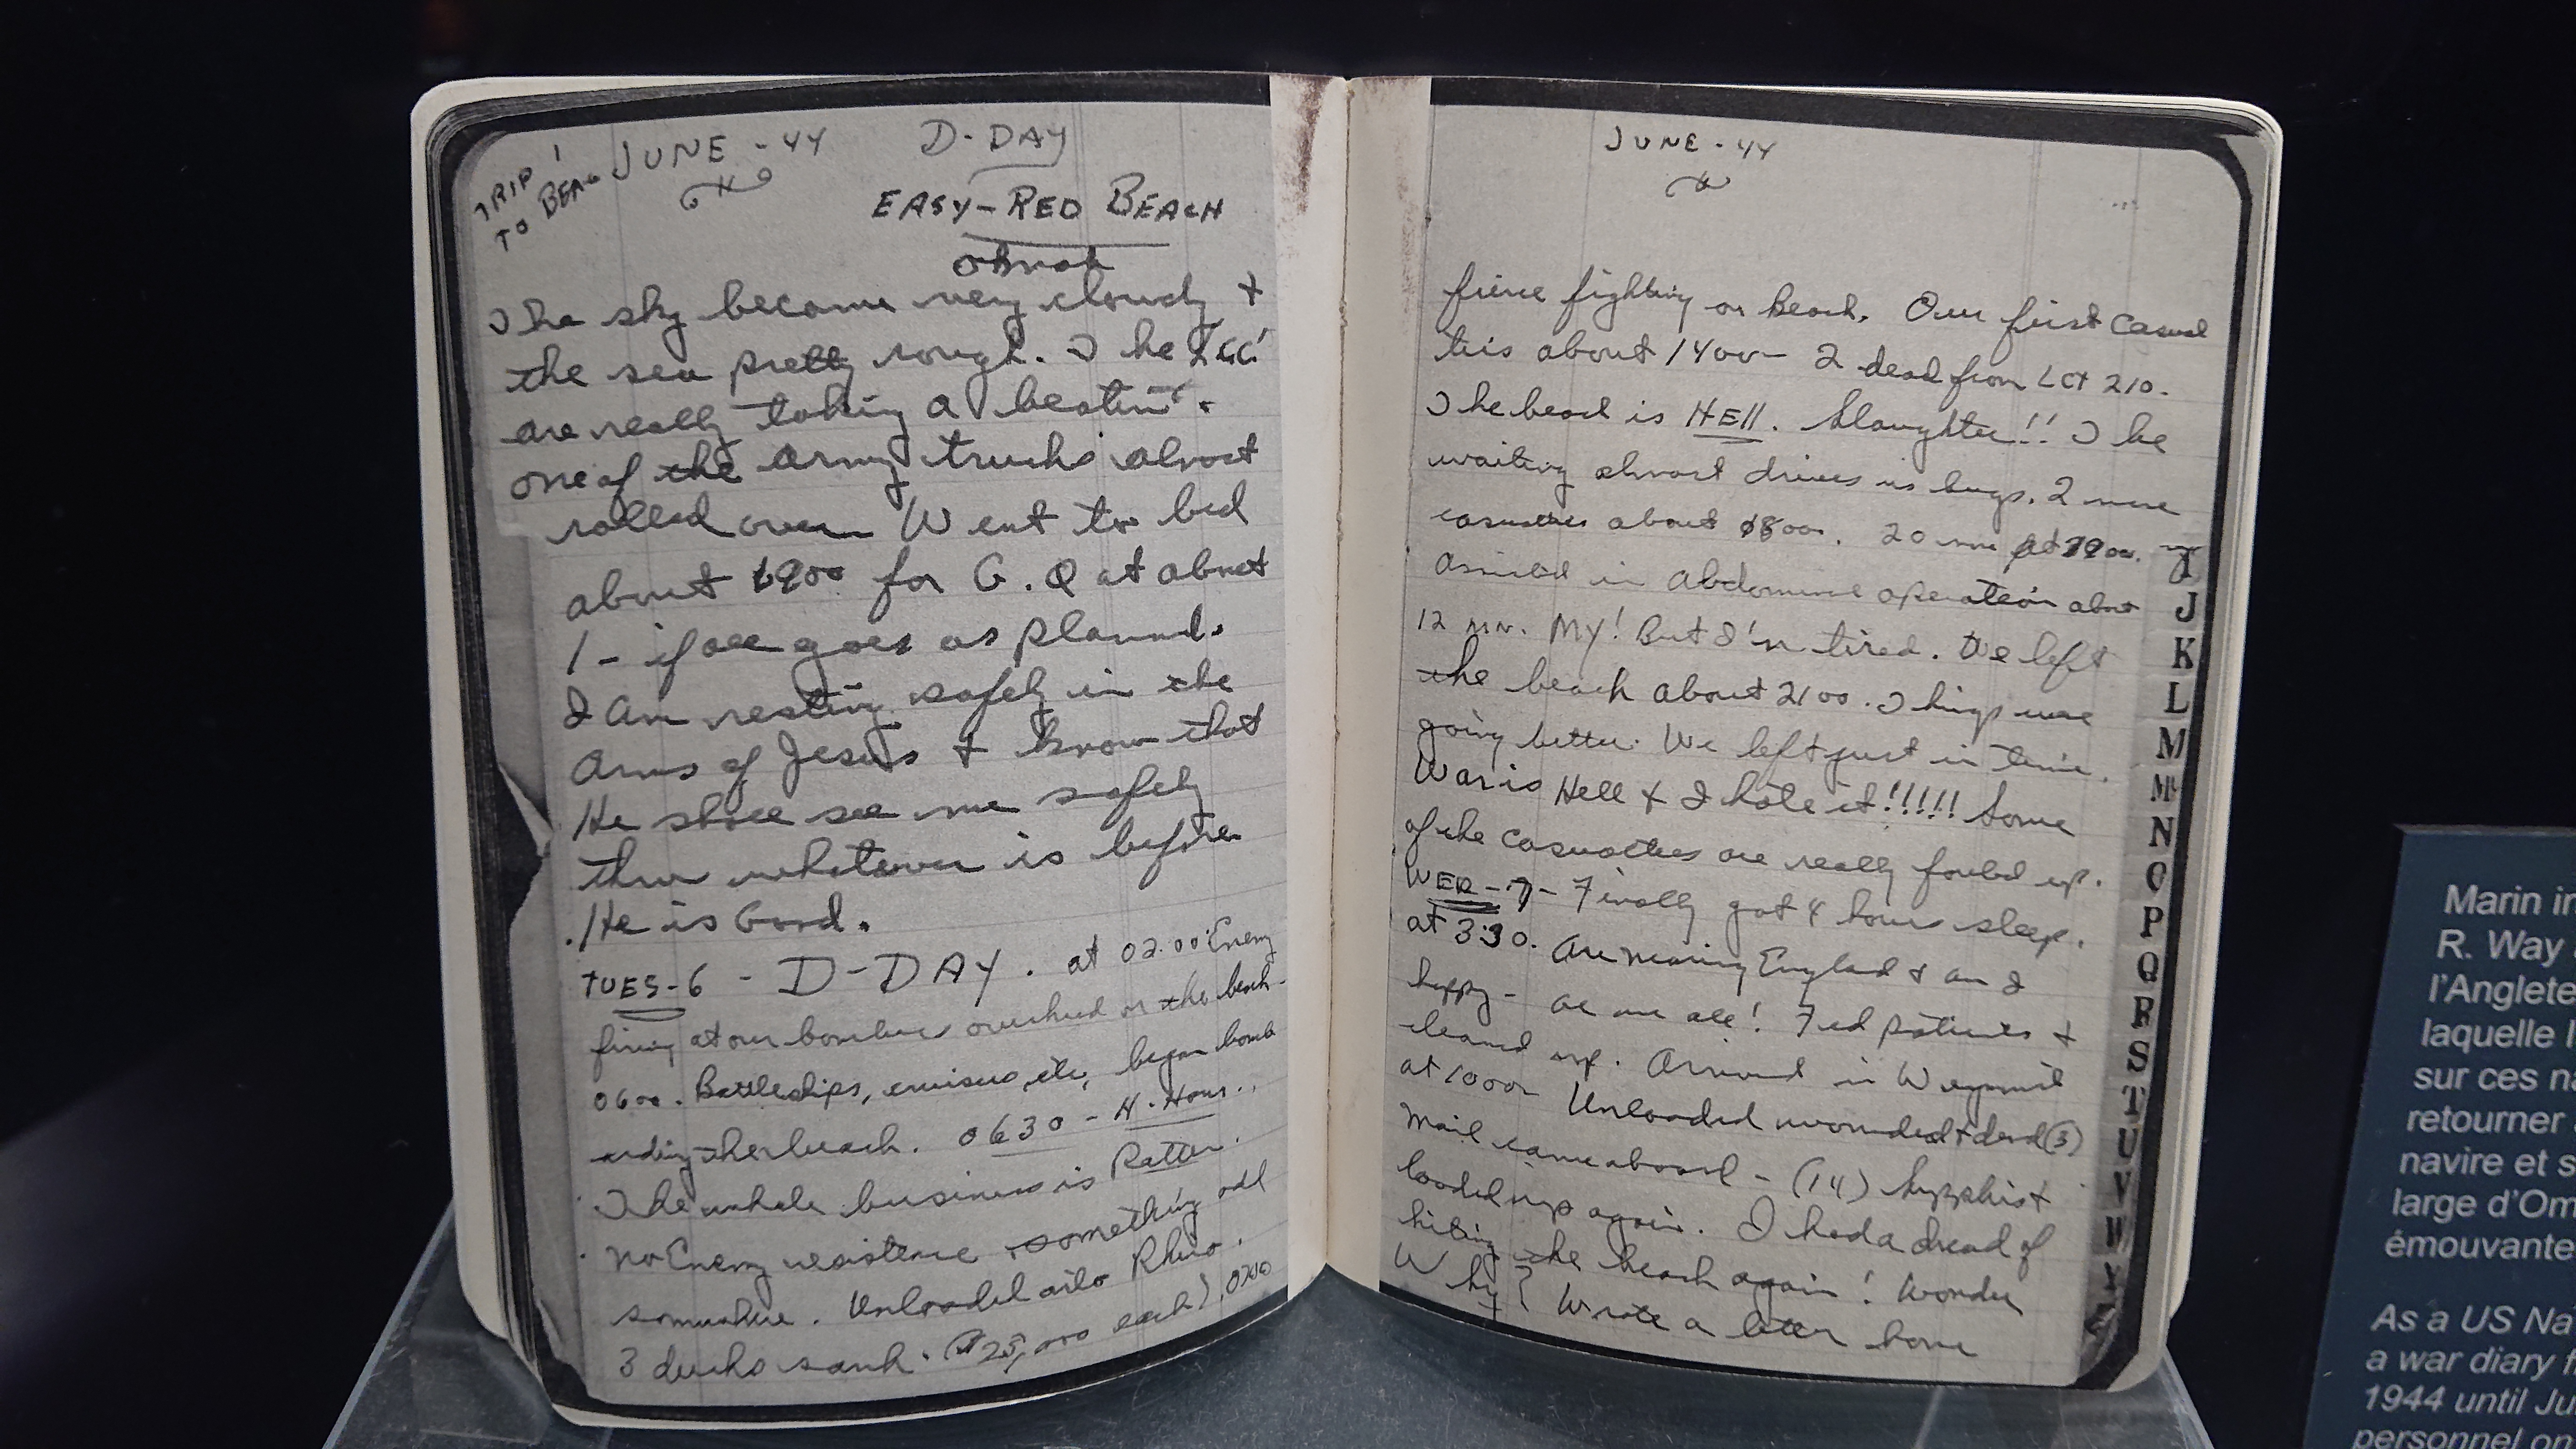 TRIP 1
TO BEA
JUNE - 44 D-DAY
EASY-RED BEACH
The sky became very cloudy +
the sea pretty rough. The
are really taking a beating.
one of the Army trucks almost
rolled over. Went to bed
about 1900 for G.Q at about
1 - if all goes as planned.
I am resting safely in the
Arms of Jesus + know that
He shall see me safely
thru whatever is before.
He is Good.
TUES-6 - D-DAY. at 02.00 Enemy
firing at our bombers overhead on the beach-
0600. Battleships, cruisers, etc, began bomb
arding the beach. 0630 - H-Hour.
The whole business is
no Enemy resistence something odd
somewhere. Unloaded Rhino.
3 ducks sank. ($25,000 each)
JUNE - 44
fierce fighting on beach. Our first casual
ties about 1400 - 2 dead from LCT 210.
The beach is HEll. Slaughter!! The
waiting almost drives us bugs. 2 more
casualties about 1800. 20 more at 1900.
Assisted in Abdominal operation about
12 MN. MY! But I'm tired. We left
the beach about 2100. Things were
going better. We left just in time.
War is Hell + I hate it!!!!! Some
of the casualties are really fouled up.
WED-7- Finally got 4 hours sleep.
at 3:30. Are nearing England + am I
happy - as are all! Fed patients +
cleaned up. Arrived in Weymouth
at 1000 Unloaded wounded + dead (3)
Mail came aboard - (14)
loaded up again. I had a dread of
hiting the beach again! Wonder
Why? Wrote a letter home
J
K
L
M
Mc
N
O
P
Q
R
S
T
U
V
W
Marin
R. Way
l'Anglete
laquelle l
sur ces na
retourner
navire et s
large d'Om
émouvante
As a US Na
a war diary f
1944 until Ju
personnel on